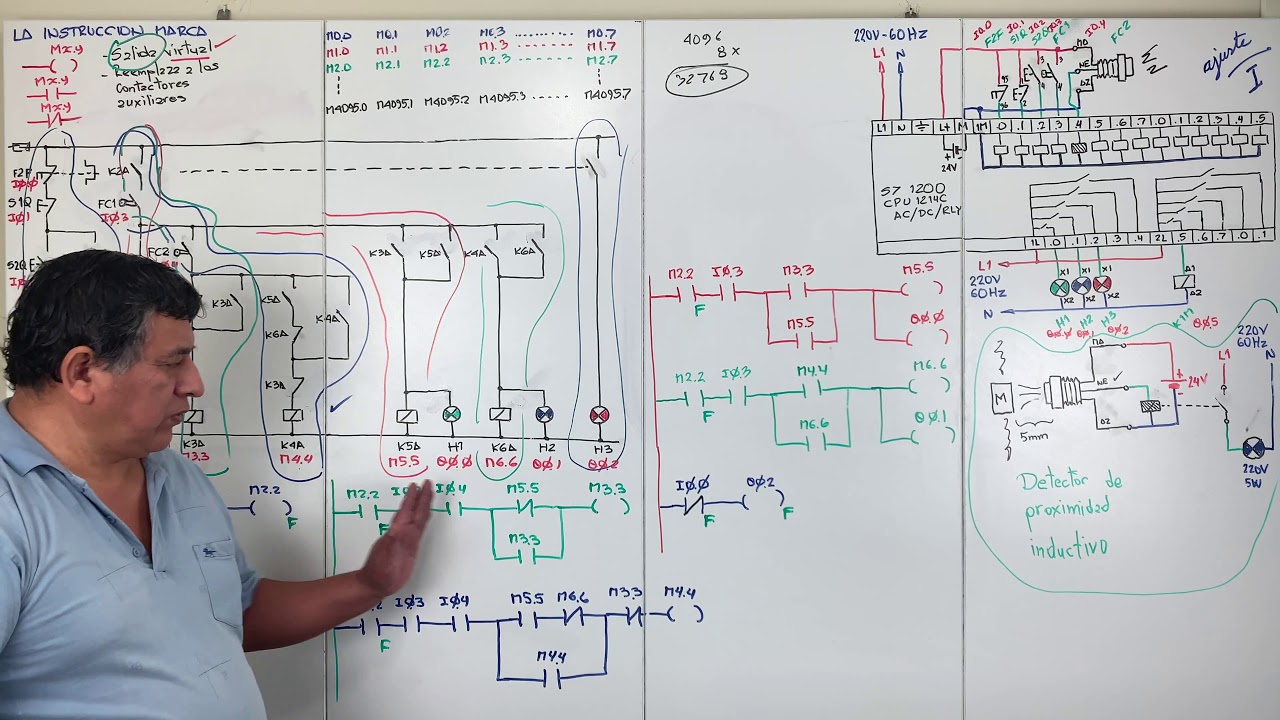 LA INSTRUCCION MARCA
Mx.y
Mx.y
Mx.y
Salida virtual
- Reemplaza a los
contactores
auxiliares
M0.0 M0.1 M0.2 M0.3 ........ M0.7
M1.0 M1.1 M1.2 M1.3 ........ M1.7
M2.0 M2.1 M2.2 M2.3 ........ M2.7
M4095.0 M4095.1 M4095.2 M4095.3 ...... M4095.7
4096
8 x
32768
F2F
I0.0
S1Q
I0.1
S2Q
K2A
FC1
I0.3
FC2
K3A
K5A
K6A
K4A
K3A
K3A
K5A
K4A
K6A
K3A
M3.3
K4A
M4.4
K5A
M5.5
H1
Q0.0
K6A
M6.6
H2
Q0.1
H3
Q0.2
M2.2
F
M2.2 I0.4 M5.5 M3.3
F
M3.3
I0.3 I0.4 M5.5 M6.6 M3.3 M4.4
F
M4.4
M2.2 I0.3 M3.3 M5.5
F
M5.5 Q0.0
M2.2 I0.3 M4.4 M6.6
F
M6.6 Q0.1
I0.0 Q0.2
F F
220V-60Hz
L1 N
I0.0 I0.1 I0.2 I0.3 I0.4
F2F S1Q S2Q FC1 FC2
MO
NE
AZ
95
96
1
2
3
4
3
4
ajuste
I
L1 N L+ M 1M .0 .1 .2 .3 .4 .5 .6 .7 .0 .1 .2 .3 .4 .5
24V
S7 1200
CPU 1214C
AC/DC/RLY
1L .0 .1 .2 .3 .4 2L .5 .6 .7 .0 .1
L1
220V
60Hz
N
X1 X1 X1
X2 X2 X2
A1
A2
H1 H2 H3 K1M
Q0.0 Q0.1 Q0.2 Q0.5
M
5mm
MA
NE
AZ
24V
220V
60Hz
L1 N
220V
5W
Detector de
proximidad
inductivo